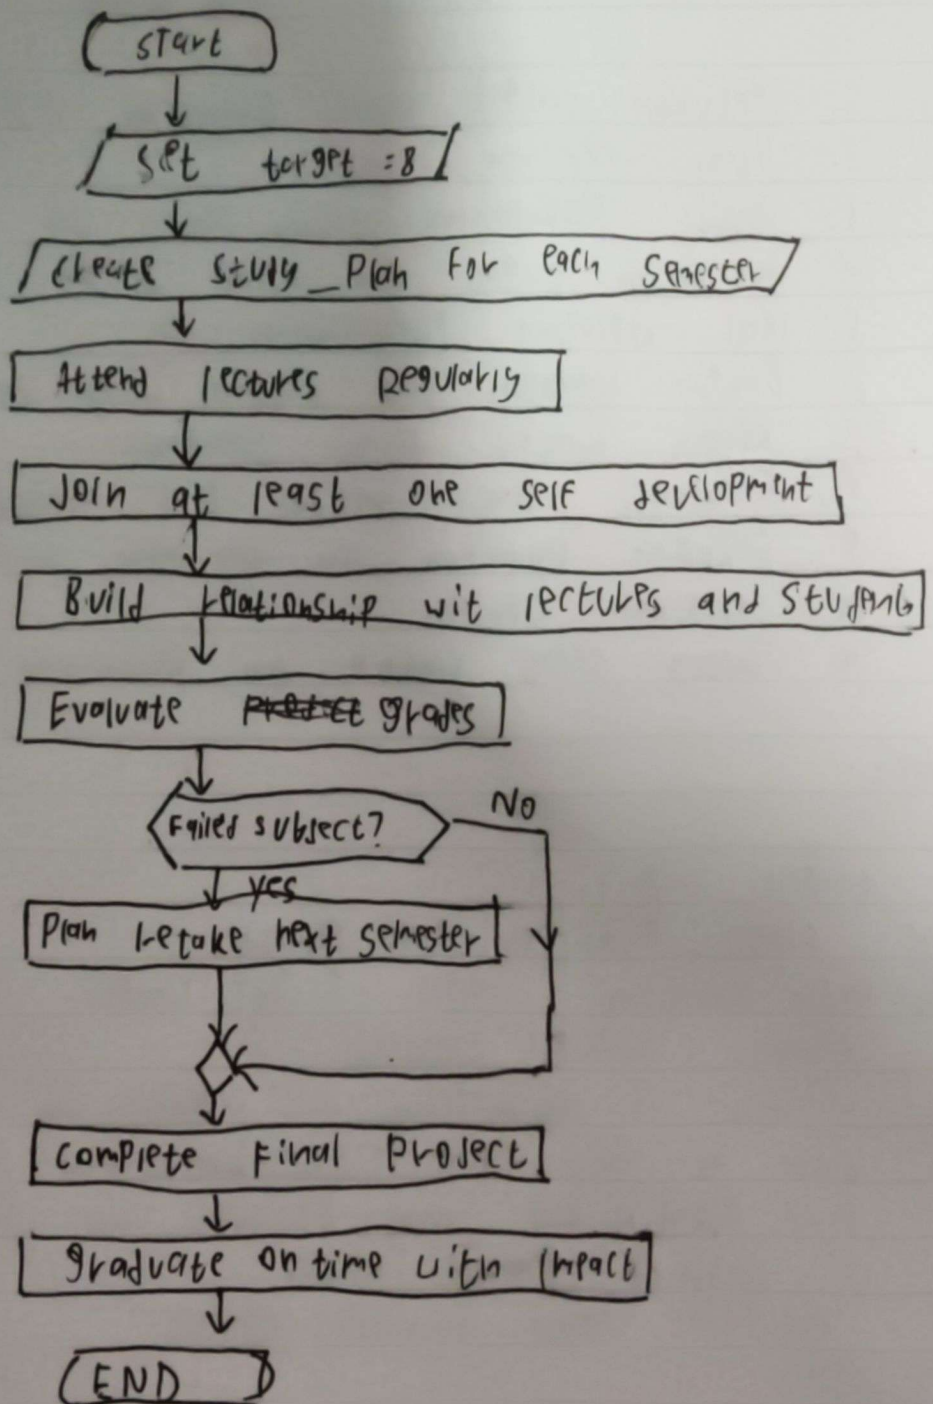 Start
Set target = 8
Create Study_Plan For each Semester
Attend lectures Regularly
Join at least one self development
Build relationship wit lectures and Students
Evaluate grades
Failed subject?
No
yes
Plan retake next semester
Complete Final Project
Graduate on time with Impact
END